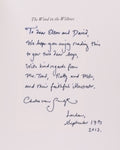 The Wind in the Willows
To dear Ellen and David,
We hope you enjoy reading this
to your two dear boys,
With kind regards from
Mr. Toad, Ratty and Mole,
and their faithful illustrator,
London,
September
2013.